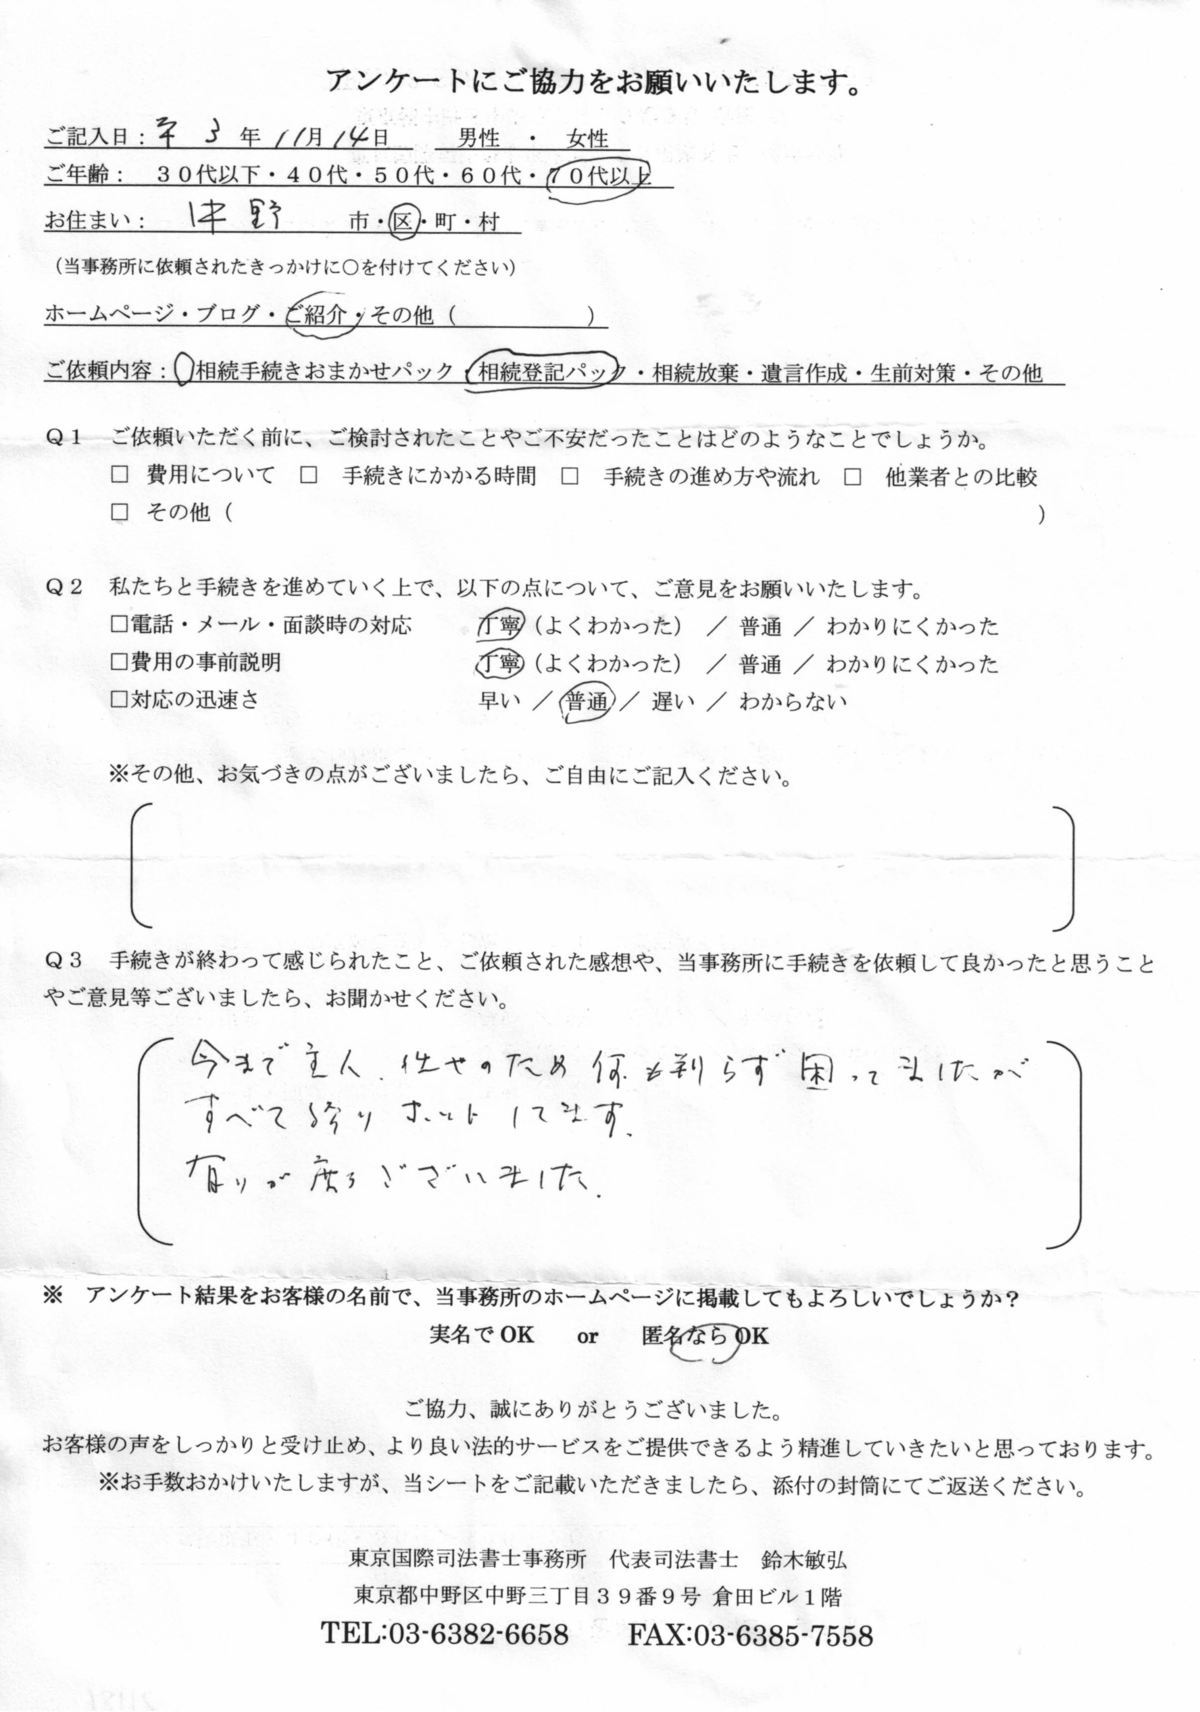 アンケートにご協力をお願いいたします。
ご記入日：令 3 年 11月 14日　　男性 ・ 女性
ご年齢：　３０代以下・４０代・５０代・６０代・７０代以上
お住まい：　中野　　市・区・町・村
（当事務所に依頼されたきっかけに○を付けてください）
ホームページ・ブログ・ご紹介・その他（　　　　　　）
ご依頼内容：相続手続きおまかせパック・相続登記パック・相続放棄・遺言作成・生前対策・その他
Ｑ１　ご依頼いただく前に、ご検討されたことやご不安だったことはどのようなことでしょうか。
□ 費用について　□　手続きにかかる時間　□　手続きの進め方や流れ　□　他業者との比較
□ その他（　　　　　　　　　　）
Ｑ２　私たちと手続きを進めていく上で、以下の点について、ご意見をお願いいたします。
□電話・メール・面談時の対応　　丁寧（よくわかった） ／ 普通 ／ わかりにくかった
□費用の事前説明　　丁寧（よくわかった） ／ 普通 ／ わかりにくかった
□対応の迅速さ　　早い ／ 普通 ／ 遅い ／ わからない
※その他、お気づきの点がございましたら、ご自由にご記入ください。
Ｑ３　手続きが終わって感じられたこと、ご依頼された感想や、当事務所に手続きを依頼して良かったと思うこと
やご意見等ございましたら、お聞かせください。
今まで主人 任せのため何も判らず困ってましたが
すべて終りホットしてます。
有りが度うございました。
※　アンケート結果をお客様の名前で、当事務所のホームページに掲載してもよろしいでしょうか？
実名で OK　　or　　匿名なら OK
ご協力、誠にありがとうございました。
お客様の声をしっかりと受け止め、より良い法的サービスをご提供できるよう精進していきたいと思っております。
※お手数おかけいたしますが、当シートをご記載いただきましたら、添付の封筒にてご返送ください。
東京国際司法書士事務所　代表司法書士　鈴木敏弘
東京都中野区中野三丁目３９番９号 倉田ビル１階
TEL:03-6382-6658　　FAX:03-6385-7558